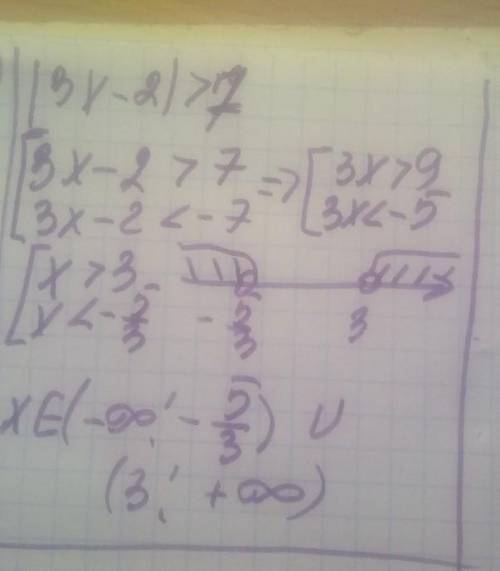 |3x-2|>7
[3x-2 > 7 => [3x>9
3x-2 < -7 3x<-5
[x > 3
x < -5/3 -5/3 3
x∈(-∞; -5/3) ∪
(3; +∞)